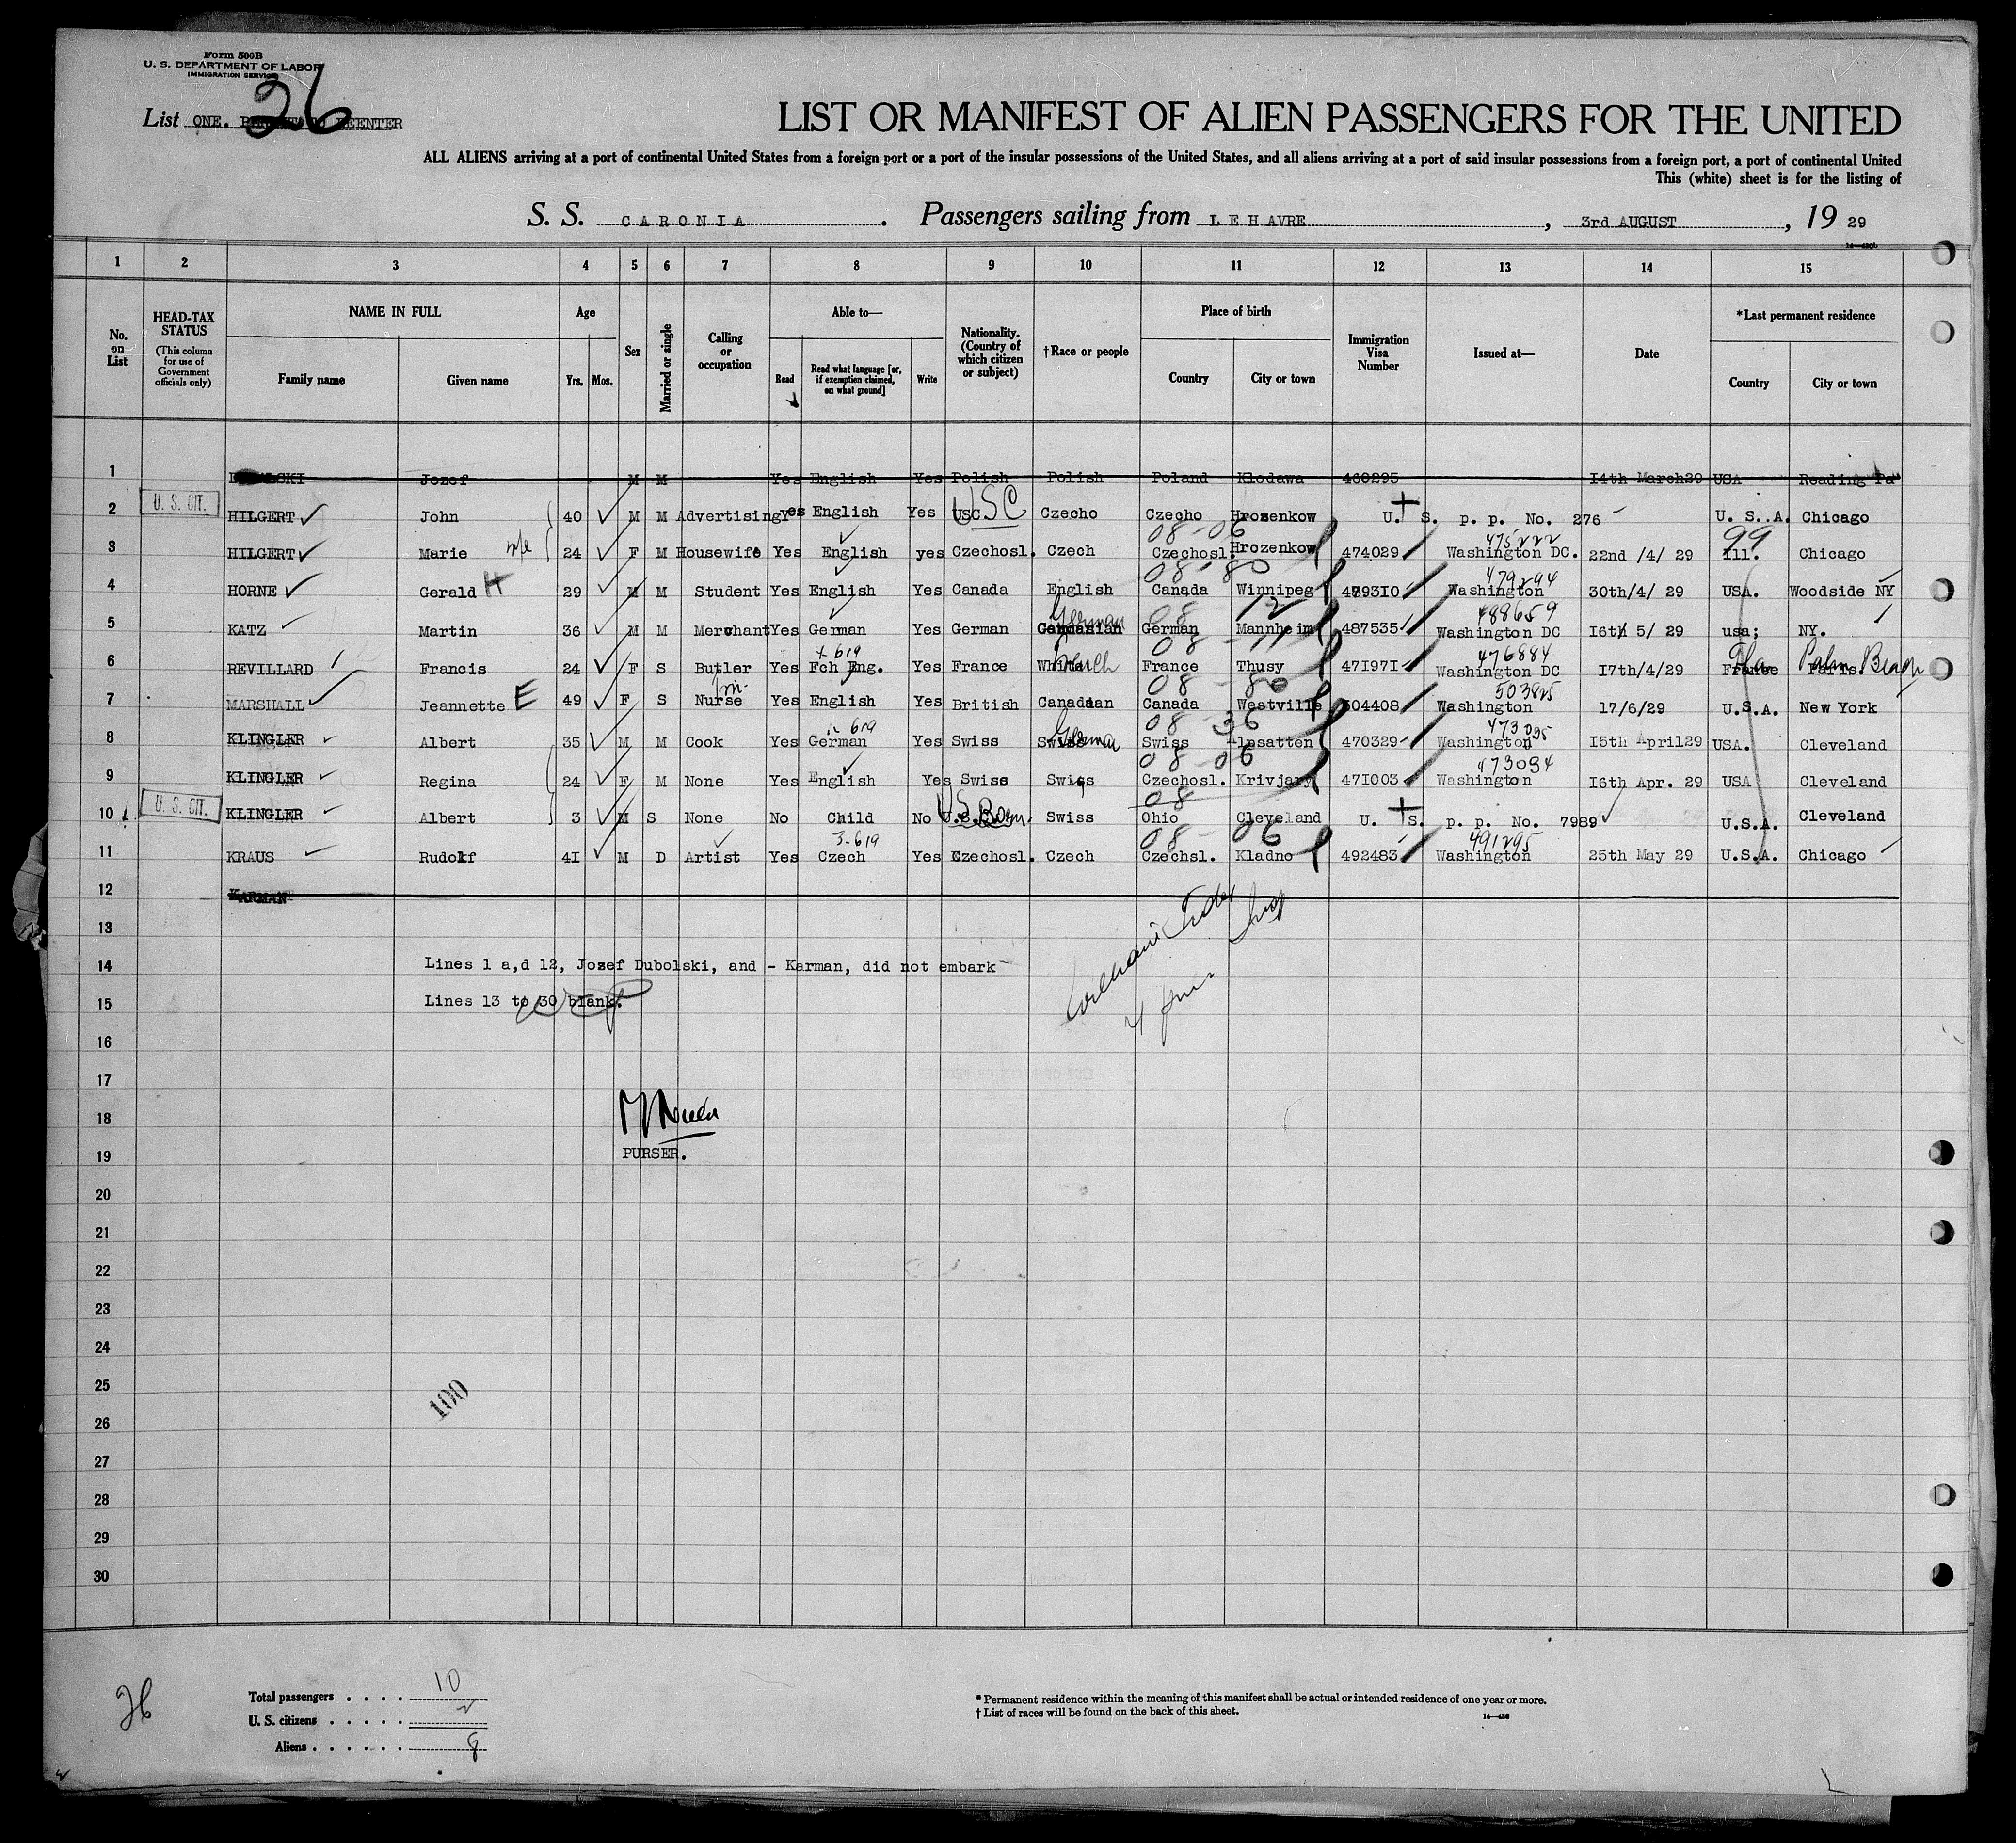 Form 500B
U. S. DEPARTMENT OF LABOR
IMMIGRATION SERVICE
26
List ONE. REENTER
LIST OR MANIFEST OF ALIEN PASSENGERS FOR THE UNITED
ALL ALIENS arriving at a port of continental United States from a foreign port or a port of the insular possessions of the United States, and all aliens arriving at a port of said insular possessions from a foreign port, a port of continental United
This (white) sheet is for the listing of
S. S. CARONIA. Passengers sailing from LEHAVRE, 3rd AUGUST, 19 29
1 2 3 4 5 6 7 8 9 10 11 12 13 14 15
No. on List
HEAD-TAX STATUS (This column for use of Government officials only)
NAME IN FULL Family name Given name
Age Yrs. Mos.
Sex
Married or single
Calling or occupation
Able to— Read Read what language [or, if exemption claimed, on what ground] Write
Nationality. (Country of which citizen or subject)
†Race or people
Place of birth Country City or town
Immigration Visa Number
Issued at—
Date
*Last permanent residence Country City or town
1 Jozef M M Yes English Yes Polish Polish Poland Klodawa 460295 14th March29 USA Reading Pa
2 U. S. CIT. HILGERT John 40 M M Advertising Yes English Yes USC USC Czecho Czecho Hrozenkow U. S. p. p. No. 276 U. S. A. Chicago
08-06 475222 99
3 HILGERT Marie 24 F M Housewife Yes English yes Czechosl. Czech Czechosl. Hrozenkow 474029 Washington DC. 22nd /4/ 29 Ill. Chicago
08-80 479294
4 HORNE Gerald H 29 M M Student Yes English Yes Canada English Canada Winnipeg 479310 Washington 30th/4/ 29 USA. Woodside NY
German 08 12 488659
5 KATZ Martin 36 M M Merchant Yes German Yes German German Mannheim 487535 Washington DC 16th 5/ 29 usa; NY.
+ 619 French 08-11 476884 Fla Palm Beach
6 REVILLARD Francis 24 F S Butler Yes Fch Eng. Yes France White France Thusy 471971 Washington DC 17th/4/29 France Paris.
08-80 503825
7 MARSHALL Jeannette E 49 F S Nurse Yes English Yes British Canadian Canada Westville 504408 Washington 17/6/29 U.S.A. New York
619 German 08-36 473095
8 KLINGLER Albert 35 M M Cook Yes German Yes Swiss Swiss Swiss Alpsatten 470329 Washington 15th April29 USA. Cleveland
08-06 473094
9 KLINGLER Regina 24 F M None Yes English Yes Swiss Swiss Czechosl. Krivjany 471003 Washington 16th Apr. 29 USA Cleveland
08
10 U. S. CIT. KLINGLER Albert 3 M S None No Child No U.S. Born. Swiss Ohio Cleveland U. S. p. p. No. 7989 U.S.A. Cleveland
3-619 08-06 491295
11 KRAUS Rudolf 41 M D Artist Yes Czech Yes Czechosl. Czech Czechsl. Kladno 492483 Washington 25th May 29 U.S.A. Chicago
12 KARMAN
13
14 Lines 1 a,d 12, Jozef Dubolski, and - Karman, did not embark
15 Lines 13 to 30 blank.
16
17
18
19 PURSER.
20
21
22
23
24
25 100
26
27
28
29
30
26
Total passengers . . . . 10
U. S. citizens . . . . . 2
Aliens . . . . . . 8
* Permanent residence within the meaning of this manifest shall be actual or intended residence of one year or more.
† List of races will be found on the back of this sheet.